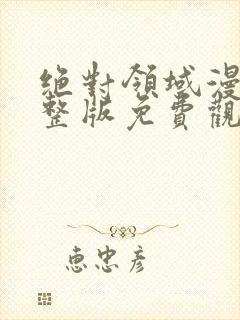 絕對領域漫
整版免費觀
惠忠彦